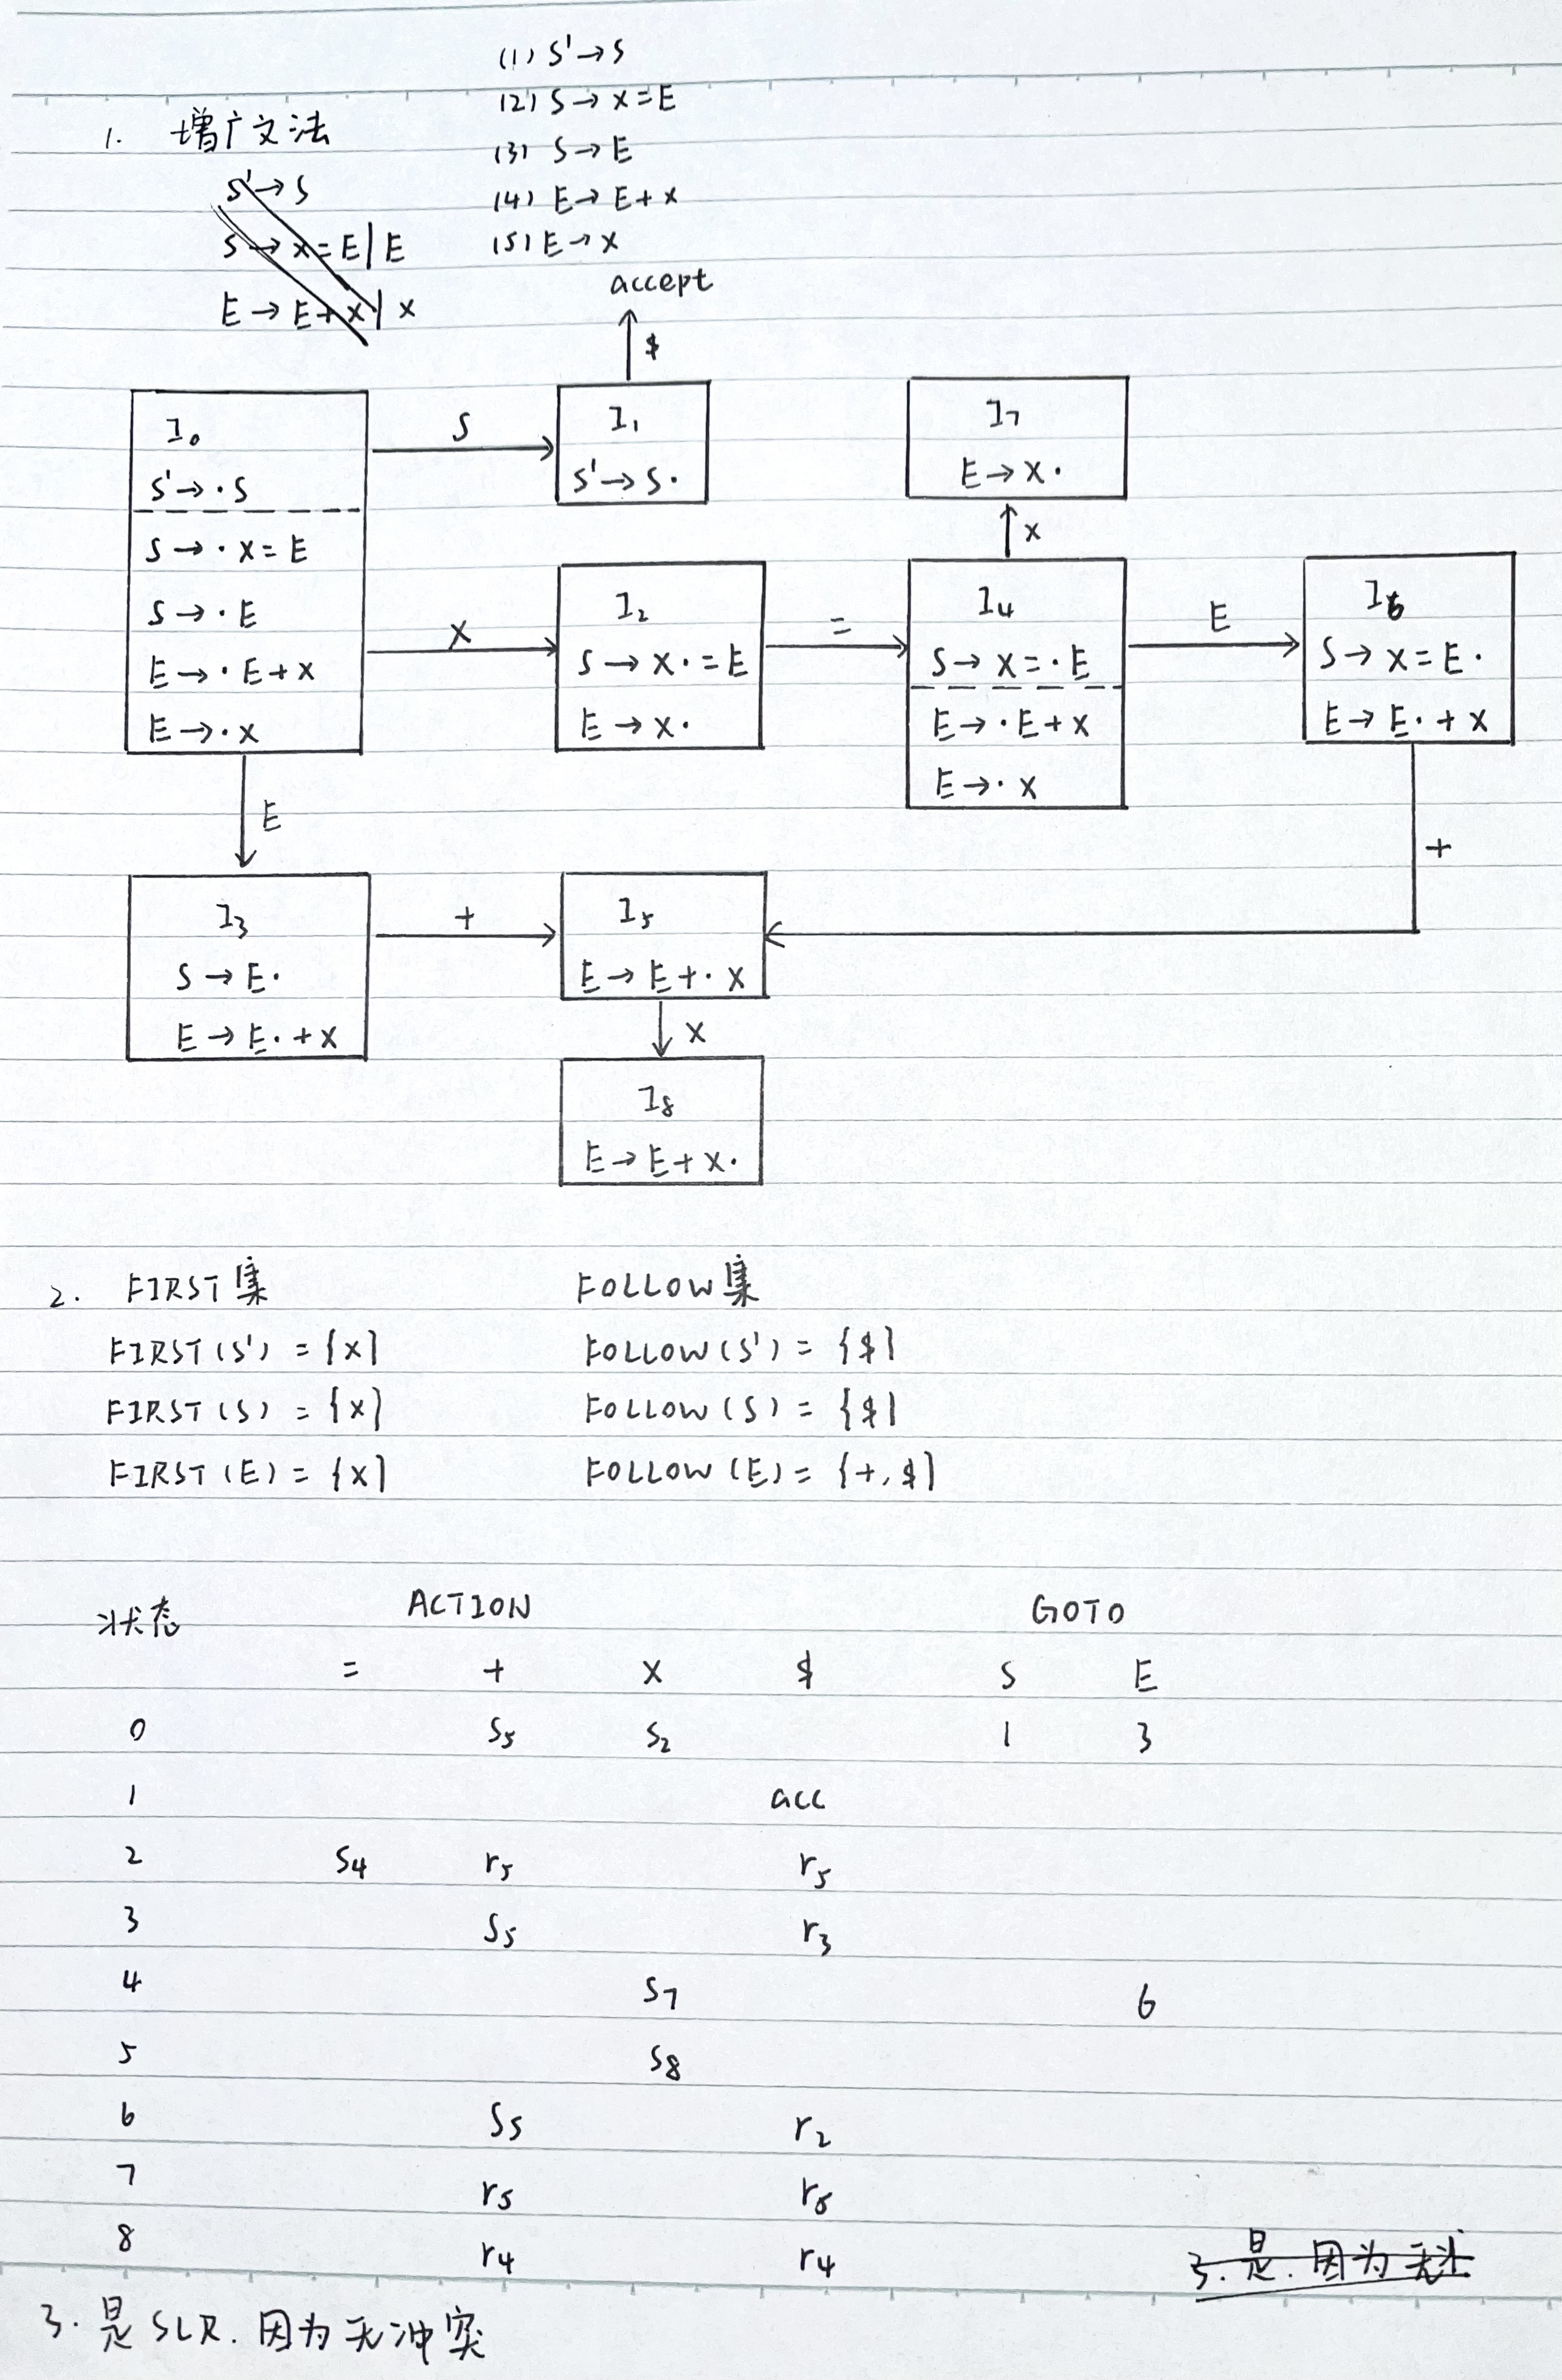 (1) S'→S
(2) S→x=E
1. 增广文法
(3) S→E
S'→S
(4) E→E+x
S→x=E|E
(5) E→x
E→E+x|x
accept
$
I₀
S'→·S
S→·x=E
S→·E
E→·E+x
E→·x
S
I₁
S'→S·
I₇
E→x·
x
x
I₂
S→x·=E
E→x·
=
I₄
S→x=·E
E→·E+x
E→·x
E
I₆
S→x=E·
E→E·+x
E
+
I₃
S→E·
E→E·+x
+
I₅
E→E+·x
x
I₈
E→E+x·
2. FIRST集 FOLLOW集
FIRST(S') = {x} FOLLOW(S') = {$}
FIRST(S) = {x} FOLLOW(S) = {$}
FIRST(E) = {x} FOLLOW(E) = {+,$}
状态 ACTION GOTO
= + x $ S E
0 S₅ S₂ 1 3
1 acc
2 S₄ r₅ r₅
3 S₅ r₃
4 S₇ 6
5 S₈
6 S₅ r₂
7 r₅ r₅
8 r₄ r₄
3. 是. 因为无
3. 是SLR. 因为无冲突